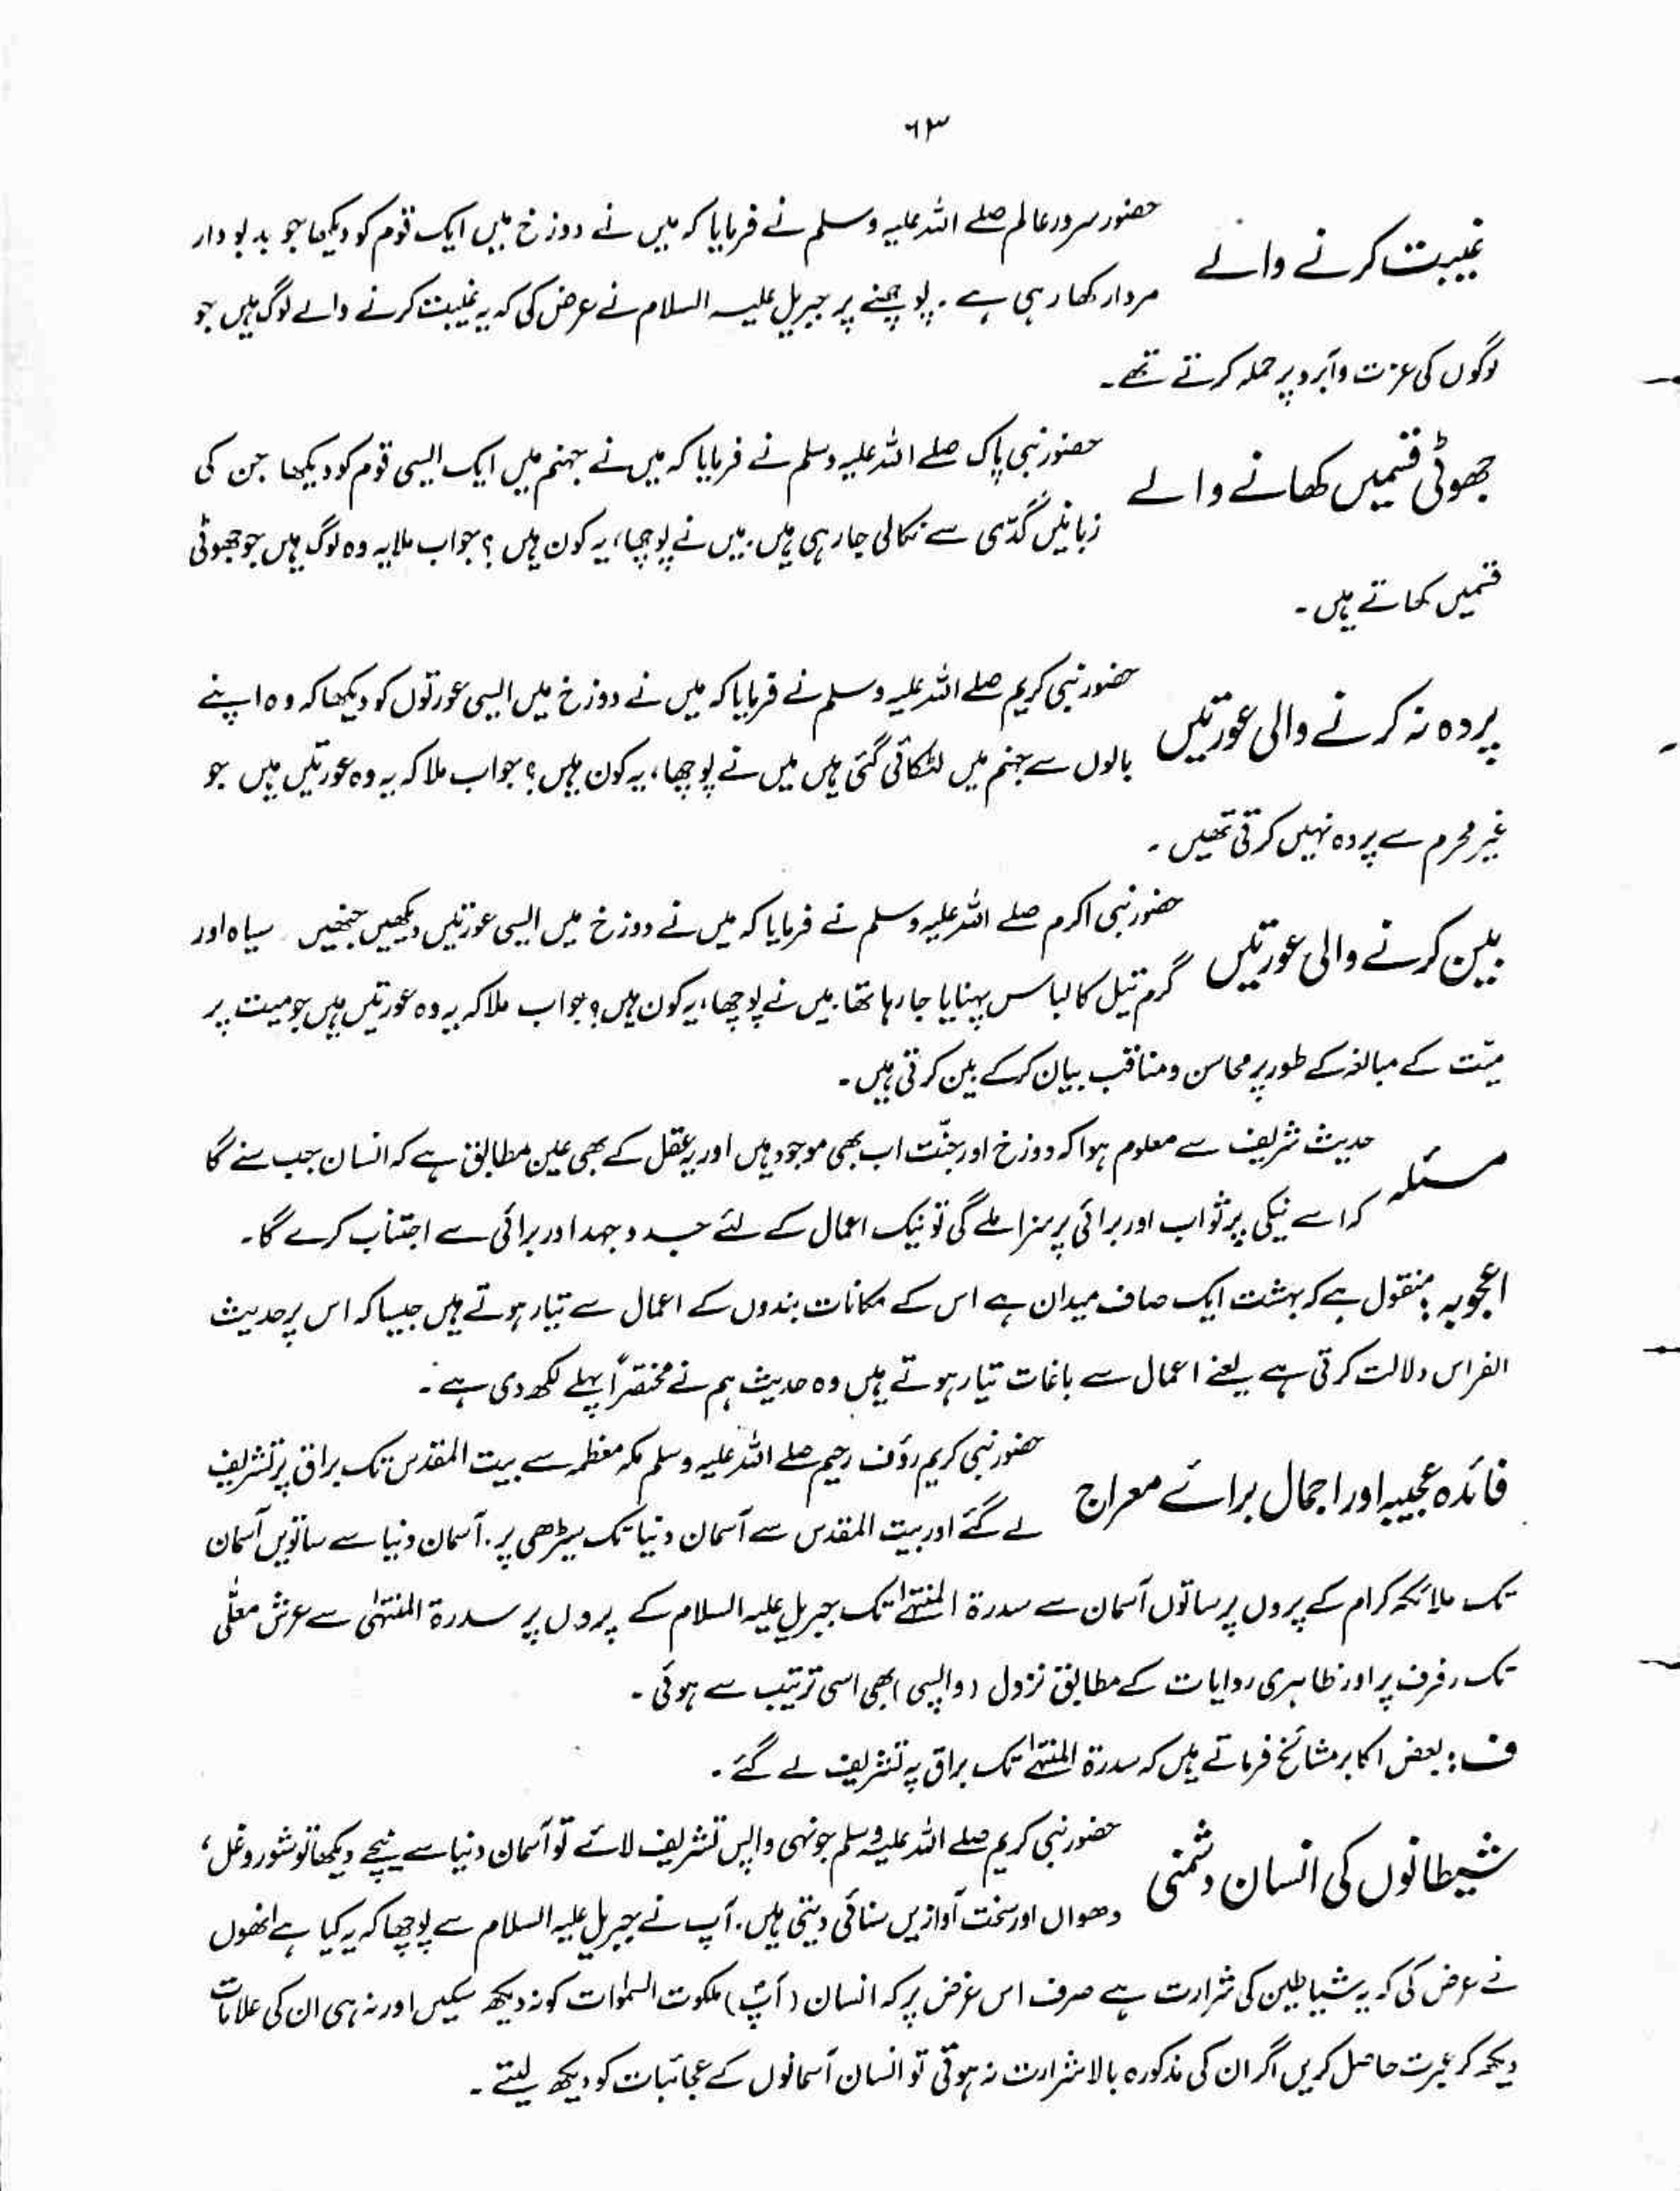 ۶۳
غیبت کرنے والے
حضور سرور عالم صلے اللہ علیہ وسلم نے فرمایا کہ میں نے دوزخ میں ایک قوم کو دیکھا جو بدبودار
مردار کھا رہی ہے ۔ پوچھنے پر جبریل علیہ السلام نے عرض کی کہ یہ غیبت کرنے والے لوگ ہیں جو
لوگوں کی عزت و آبرو پر حملہ کرتے تھے ۔
جھوٹی قسمیں کھانے والے
حضور نبی پاک صلے اللہ علیہ وسلم نے فرمایا کہ میں نے جہنم میں ایک ایسی قوم کو دیکھا جن کی
زبانیں گدّی سے نکالی جا رہی ہیں ۔ میں نے پوچھا ، یہ کون ہیں ؟ جواب ملا یہ وہ لوگ ہیں جو جھوٹی
قسمیں کھاتے ہیں ۔
پردہ نہ کرنے والی عورتیں
حضور نبی کریم صلے اللہ علیہ وسلم نے فرمایا کہ میں نے دوزخ میں ایسی عورتوں کو دیکھا کہ وہ اپنے
بالوں سے جہنم میں لٹکائی گئی ہیں میں نے پوچھا ، یہ کون ہیں ؟ جواب ملا کہ یہ وہ عورتیں ہیں جو
غیر محرم سے پردہ نہیں کرتی تھیں ۔
بین کرنے والی عورتیں
حضور نبی اکرم صلے اللہ علیہ وسلم نے فرمایا کہ میں نے دوزخ میں ایسی عورتیں دیکھیں جنھیں سیاہ اور
گرم تیل کا لباس پہنایا جا رہا تھا ۔ میں نے پوچھا ، یہ کون ہیں ؟ جواب ملا کہ یہ وہ عورتیں ہیں جو میت پر
میّت کے مبالغہ کے طور پر محاسن و مناقب بیان کرکے بین کرتی ہیں ۔
مسئلہ
حدیث شریف سے معلوم ہوا کہ دوزخ اور جنّت اب بھی موجود ہیں اور یہ عقل کے بھی عین مطابق ہے کہ انسان جب سنے گا
کہ اسے نیکی پر ثواب اور برائی پر سزا ملے گی تو نیک اعمال کے لئے جد و جہد اور برائی سے اجتناب کرے گا ۔
اعجوبہ : منقول ہے کہ بہشت ایک صاف میدان ہے اس کے مکانات بندوں کے اعمال سے تیار ہوتے ہیں جیسا کہ اس پر حدیث
الغراس دلالت کرتی ہے یعنے اعمال سے باغات تیار ہوتے ہیں وہ حدیث ہم نے مختصراً پہلے لکھ دی ہے ۔
فائدہ عجیبہ اور اجمال برائے معراج
حضور نبی کریم رؤف رحیم صلے اللہ علیہ وسلم مکہ معظمہ سے بیت المقدس تک براق پر تشریف
لے گئے اور بیت المقدس سے آسمان دنیا تک سیڑھی پر ۔ آسمان دنیا سے ساتویں آسمان
تک ملائکہ کرام کے پروں پر ساتوں آسمان سے سدرۃ المنتہے تک جبریل علیہ السلام کے پروں پر سدرۃ المنتہٰی سے عرش معلّٰی
تک رفرف پر اور ظاہری روایات کے مطابق نزول ( واپسی ) بھی اسی ترتیب سے ہوئی ۔
ف : بعض اکابر مشائخ فرماتے ہیں کہ سدرۃ المنتہے تک براق پہ تشریف لے گئے ۔
شیطانوں کی انسان دشمنی
حضور نبی کریم صلے اللہ علیہ وسلم جونہی واپس تشریف لائے تو آسمان دنیا سے نیچے دیکھا تو شور و غل ،
دھواں اور سخت آوازیں سنائی دیتی ہیں ۔ آپ نے جبریل علیہ السلام سے پوچھا کہ یہ کیا ہے انھوں
نے عرض کی کہ یہ شیاطین کی شرارت ہے صرف اس غرض پر کہ انسان ( آپؐ ) ملکوت السمٰوات کو نہ دیکھ سکیں اور نہ ہی ان کی علامات
دیکھ کر عبرت حاصل کریں اگر ان کی مذکورہ بالا شرارت نہ ہوتی تو انسان آسمانوں کے عجائبات کو دیکھ لیتے ۔